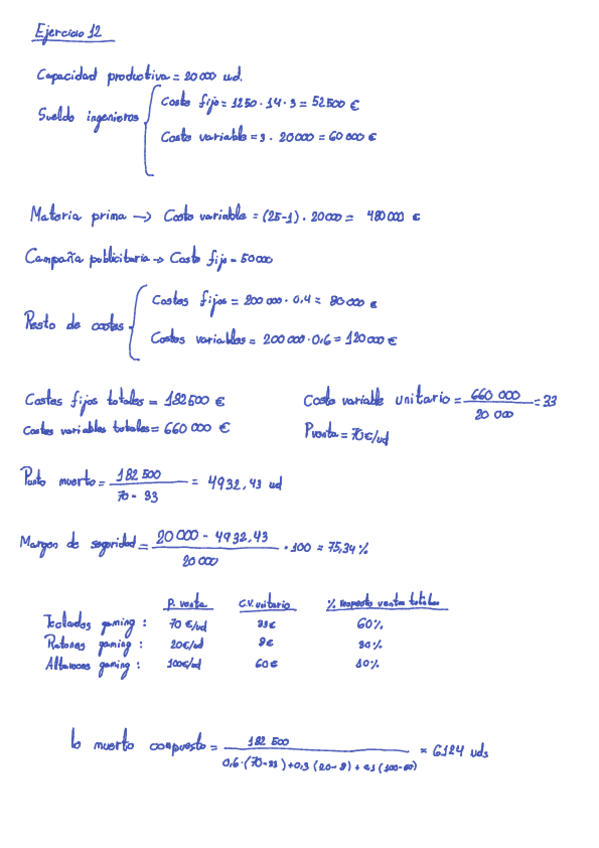 Ejercicio 12
Capacidad productiva = 20000 ud.
Sueldo ingenieros
Costo fijo = 1250 · 14 · 3 = 52500 €
Costo variable = 3 · 20000 = 60000 €
Materia prima -> Costo variable = (25-1) · 20000 = 480000 €
Campaña publicitaria -> Costo fijo = 50000
Resto de costes
Costes fijos = 200000 · 0,4 = 80000 €
Costes variables = 200000 · 0,6 = 120000 €
Costes fijos totales = 182500 €
Costes variables totales = 660000 €
Costo variable unitario = 660 000 / 20 000 = 33
Pventa = 70€/ud
Punto muerto = 182 500 / 70 - 33 = 4932,43 ud
Margen de seguridad = 20000 - 4932,43 / 20000 · 100 = 75,34%
P. venta C.V. unitario % respecto ventas totales
Teclados gaming : 70 €/ud 33€ 60%
Ratones gaming : 20€/ud 8€ 30%
Altavoces gaming : 100€/ud 60€ 10%
to muerto compuesto = 182 500 / 0,6·(70-33)+0,3(20-8)+0,1(100-60) = 6124 uds